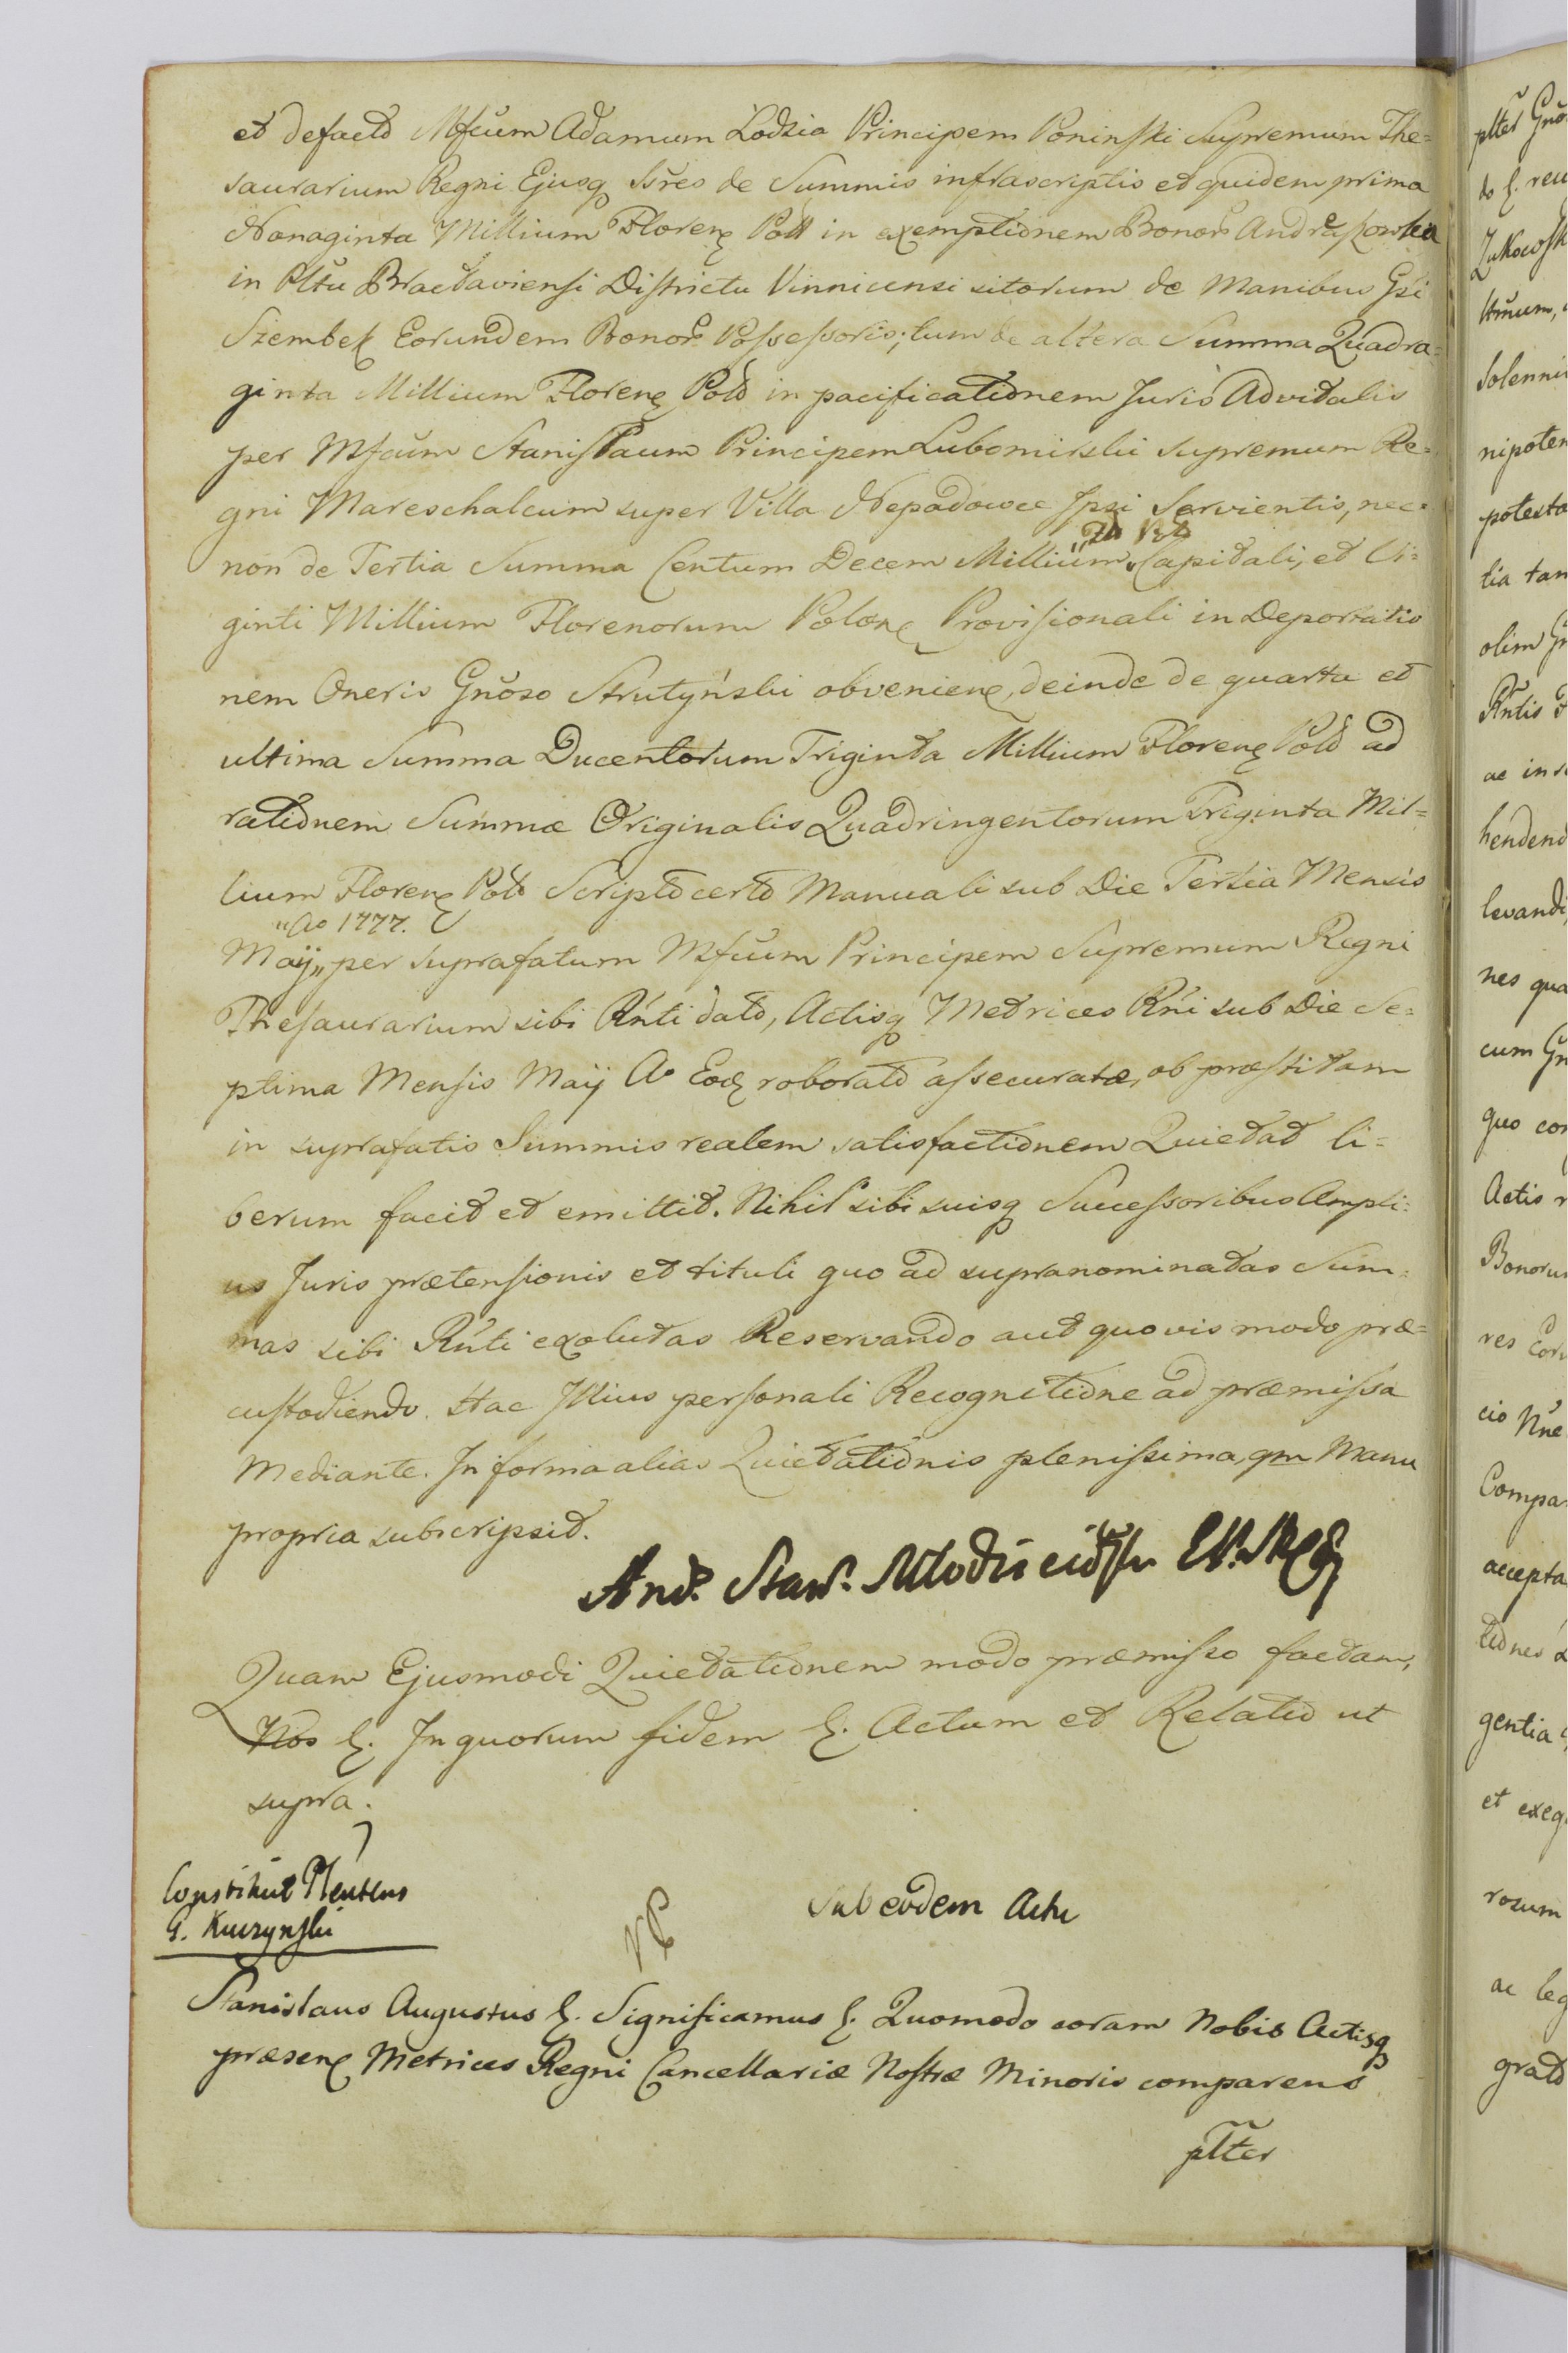 et defacto Mfcum Adamum Łodzia Principem Poninski Supremum The=
saurarium Regni Ejusq Ssres de Summis infrascriptis et quidem prima
Nonaginta Millium Floren Poll in exemptionem Bonor Andraszowka
in Pltu Braclaviensi Districtu Vinnicensi sitorum de Manibus Gsi
Szembek Eorundem Bonor Possessoris; tum de altera Summa Quadra=
ginta Millium Floren Pold in pacificationem Juris Advitalis
per Mfcum Stanislaum Principem Lubomirski Supremum Re=
gni Mareschalcum super Villa Nepadowce Ipsi Servientis, nec=
non de Tertia Summa Centum Decem Millium Capitali, et Vi=
ginti Millium Florenorum Polon Provisionali in Deportatio
nem Oneris Gnoso Strutyński obvenien, deinde de quarta et
ultima Summa Ducentorum Triginta Millium Floren Pold ad
rationem Summæ Originalis Quadringentorum Triginta Mil=
lium Floren Pold Scripto certo Manuali sub Die Tertia Mensis
"Ao 1777.
Maij" per suprafatum Mfcum Principem Supremum Regni
Thesaurarium sibi Rnti dato, Actisq Metrices Rni sub Die Se=
ptima Mensis Maij Ao Eod roborato assecuratæ, ob præstitam
in suprafatis Summis realem satisfactionem Quietat li=
berum facit et emittit. Nihil sibi suisq Successoribus Ampli=
us Juris prætensionis et tituli quo ad supranominatas Sum=
mas sibi Rnti exolutas Reservando aut quovis modo præ=
custodiendo. Hac Illius personali Recognitione ad præmissa
Mediante. In forma alias Quietationis plenissima, qm Manu
propria subscripsit.
And.
Quam Ejusmodi Quietationem modo præmisso factam,
Nos &. In quorum fidem &. Actum et Relatio ut
supra.
Constituit Plentens
G. Kuczynski
Sub eodem Actu
Stanislaus Augustus &. Significamus &. Quomodo coram Nobis Actisq
præsen Metrices Regni Cancellariæ Nostræ Minoris comparens
plter